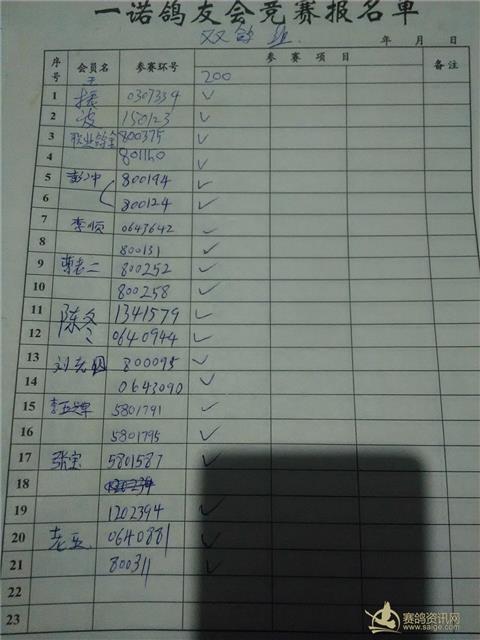 一诺鸽友会竞赛报名单
双鸽组 年 月 日
序号 会员名 参赛环号 参赛项目 备注
200
1 振 0307334 ✓
2 波 150123 ✓
3 职业鸽舍 800375 ✓
4 801160 ✓
5 彭以中 800194 ✓
6 800124 ✓
7 李顺 0643642 ✓
8 800131 ✓
9 曹老二 800252 ✓
10 800258 ✓
11 陈冬 1341579 ✓
12 0640944 ✓
13 刘老四 800095 ✓
14 0643090 ✓
15 5801791 ✓
16 5801795 ✓
17 张宝 5801587 ✓
18
19 1202394 ✓
20 老五 0640881 ✓
21 800311 ✓
22
23
赛鸽资讯网
www.saige.com